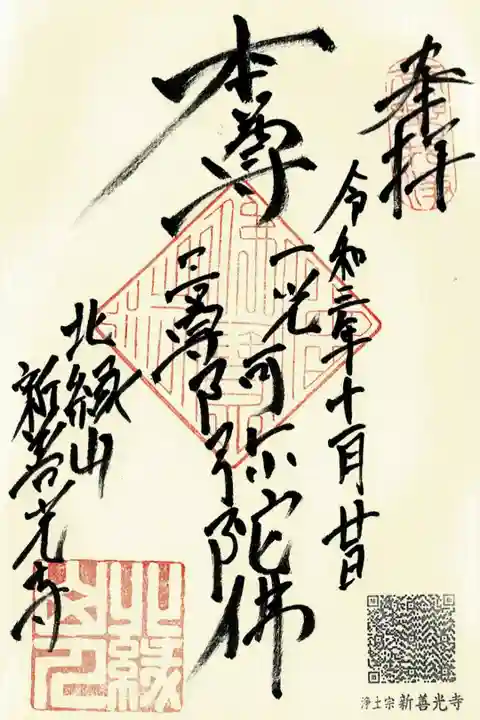 奉拝
令和三年十月廿日
本尊
一光
三尊
阿弥陀佛
北縁山
新善光寺
北縁
山印
浄土宗 新善光寺